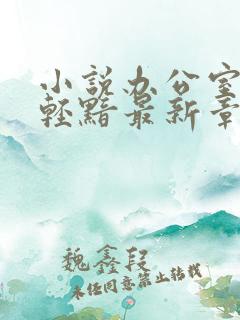 小说办公室
轻黯最新章
魏鑫段
未经同意禁止转载